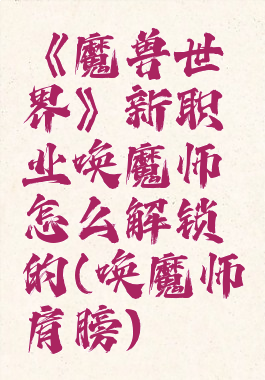 《魔兽世
界》新职
业唤魔师
怎么解锁
的(唤魔师
肩膀)